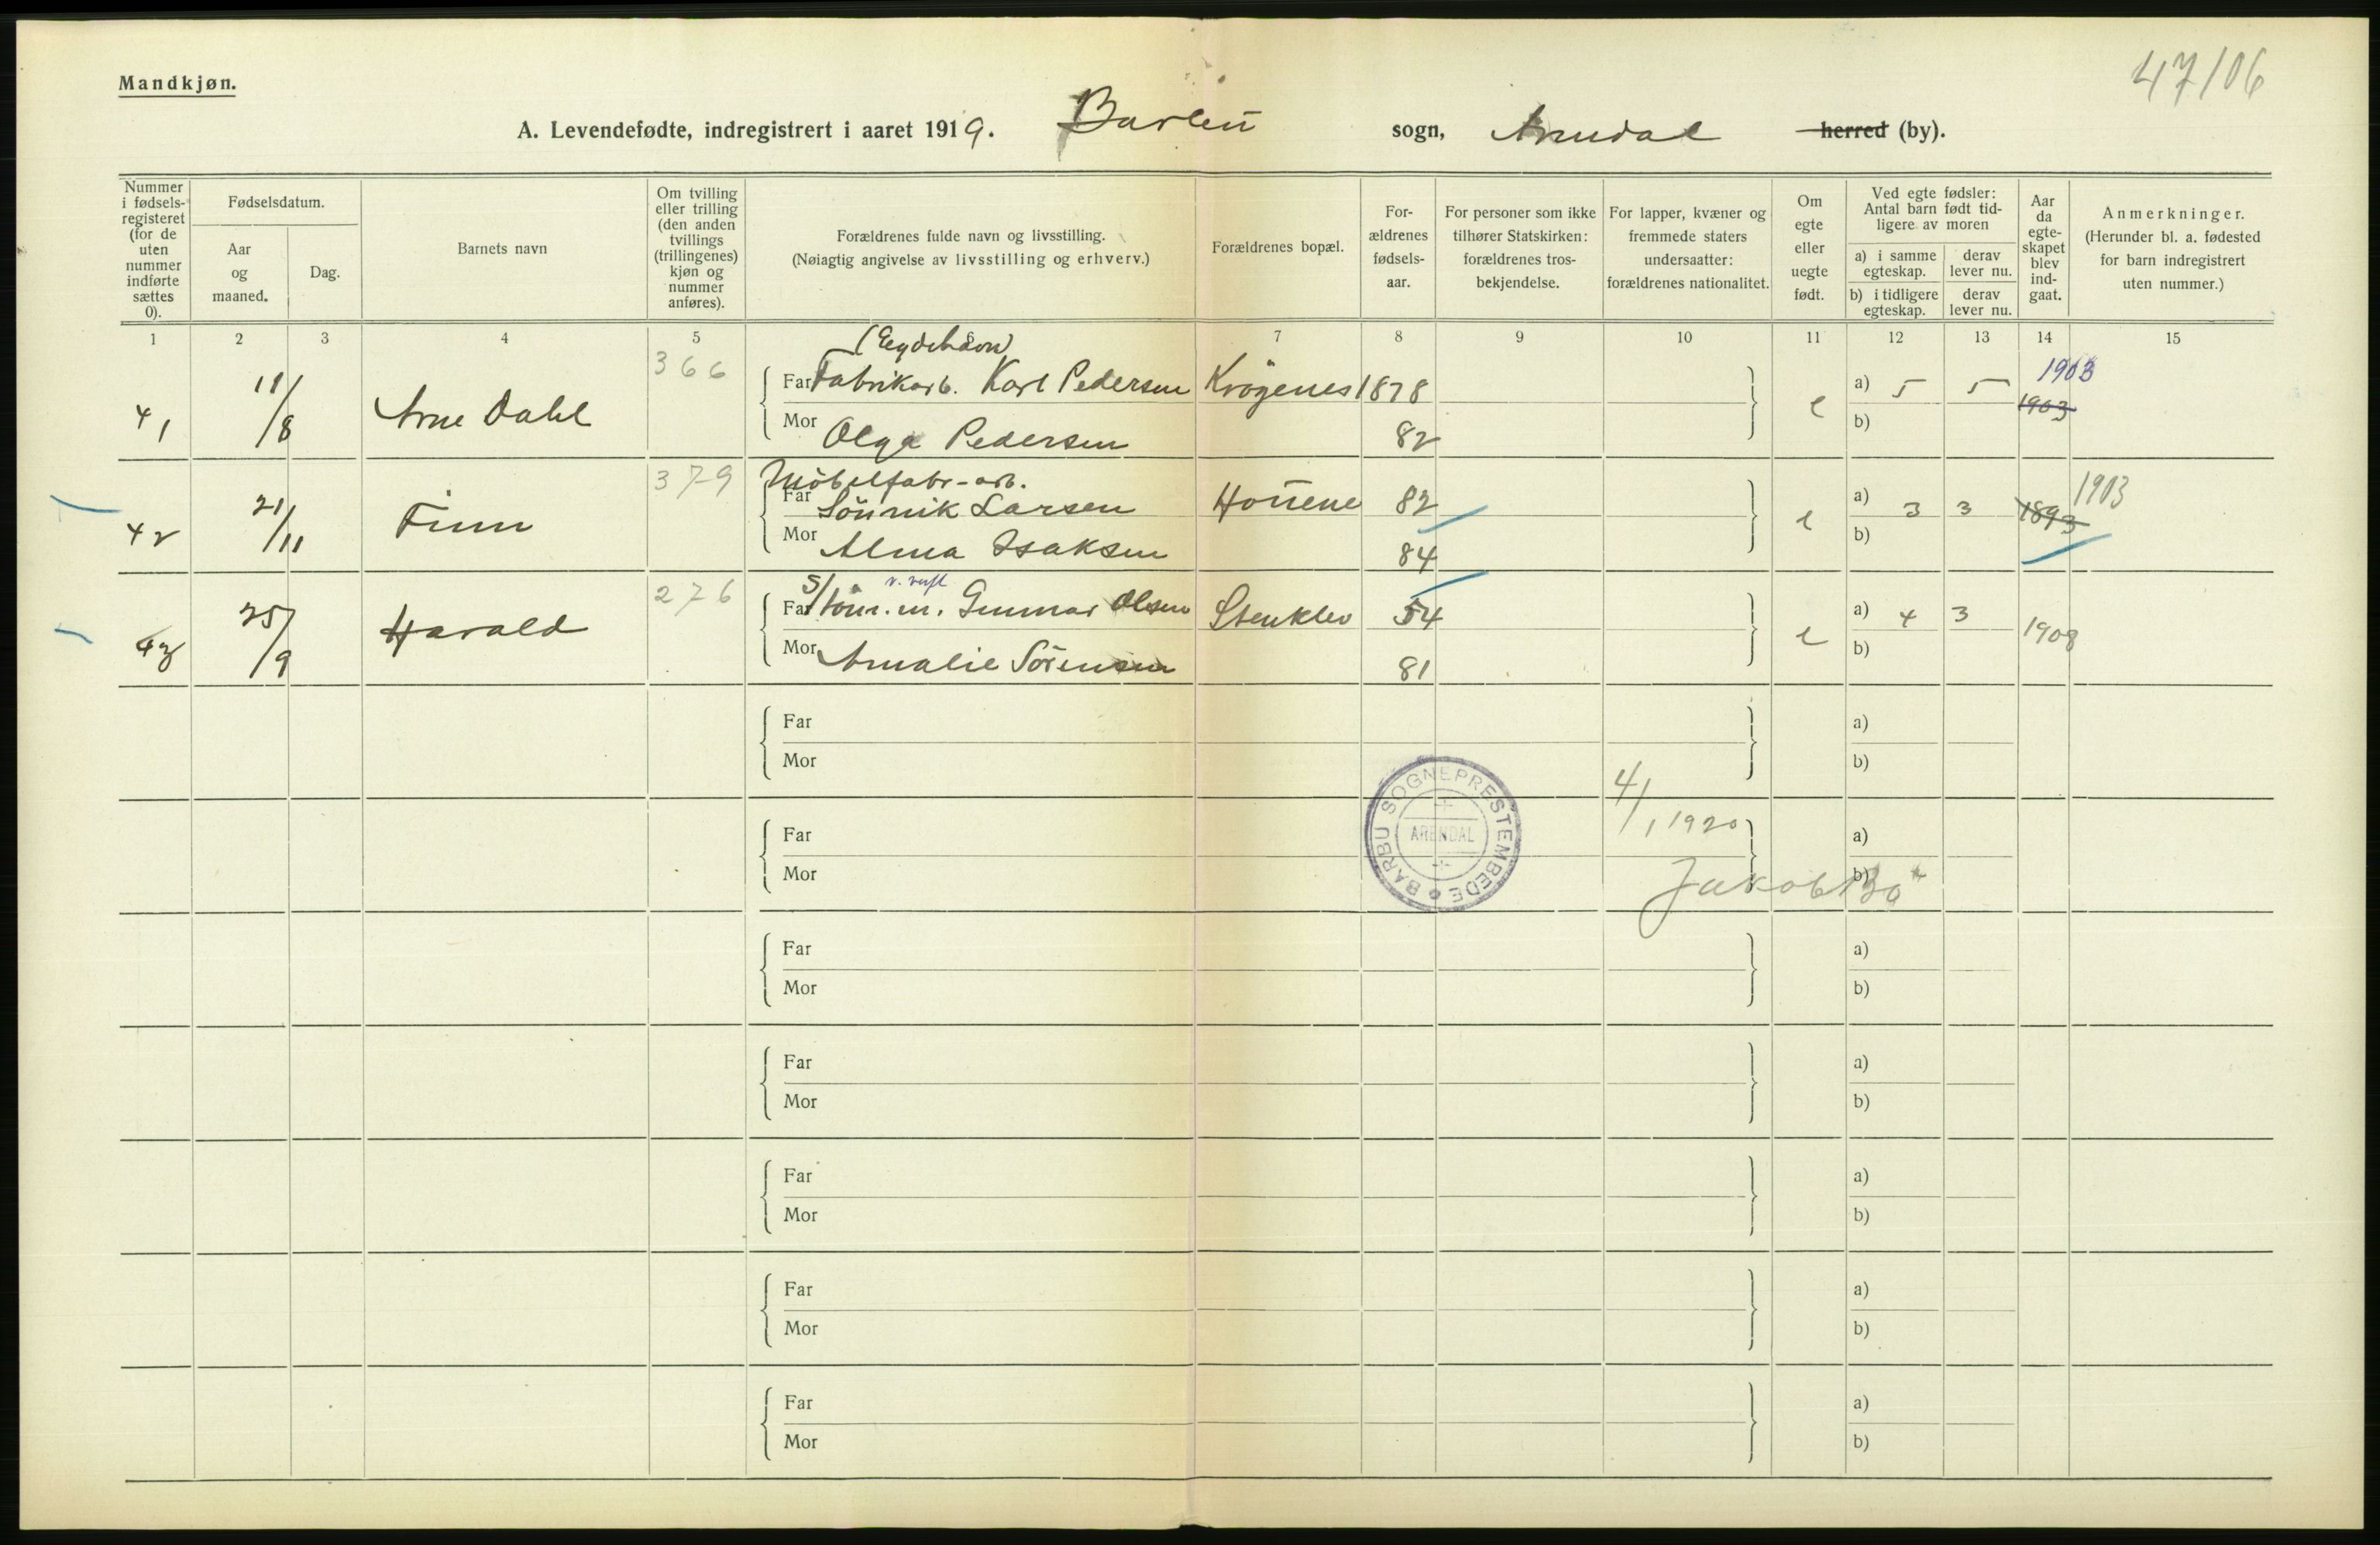 47/06
Mandkjøn.
A. Levendefødte, indregistrert i aaret 1919. Barbu sogn, Arendal herred (by).
Nummer i fødsels-registeret (for de uten nummer indførte sættes 0).
Fødselsdatum.
Aar og maaned.
Dag.
Barnets navn
Om tvilling eller trilling (den anden tvillings (trillingenes) kjøn og nummer anføres).
Forældrenes fulde navn og livsstilling.
(Nøiagtig angivelse av livsstilling og erhverv.)
Forældrenes bopæl.
For-ældrenes fødsels-aar.
For personer som ikke tilhører Statskirken: forældrenes tros-bekjendelse.
For lapper, kvæner og fremmede staters undersaatter: forældrenes nationalitet.
Om egte eller uegte født.
Ved egte fødsler: Antal barn født tid-ligere av moren
a) i samme egteskap.
derav lever nu.
b) i tidligere egteskap.
derav lever nu.
Aar da egte-skapet blev ind-gaat.
Anmerkninger.
(Herunder bl. a. fødested for barn indregistrert uten nummer.)
1 2 3 4 5 7 8 9 10 11 12 13 14 15
(Eydehavn)
41 11/8 Arne Dahl 366 Far Fabrikarb. Karl Pedersen Krøgenes 1878 e a) 5 5 1903
1903
Mor Olga Pedersen 82 b)
42 21/11 Finn 379 Møbelfabr-arb.
Far Sönnik Larsen 82 e a) 3 3 1893 1903
Mor Alma Isaksen 84 b)
43 25/9 Harald 276 Far Gunnar Olsen Stenklev 54 e a) 4 3 1908
Mor Amalie Sörensen 81 b)
Far a)
Mor b)
BARBU SOGNEPRESTEMBEDE
ARENDAL
4/1 1920
Far a)
Mor b)
Jakob
Far a)
Mor b)
Far a)
Mor b)
Far a)
Mor b)
Far a)
Mor b)
Far a)
Mor b)